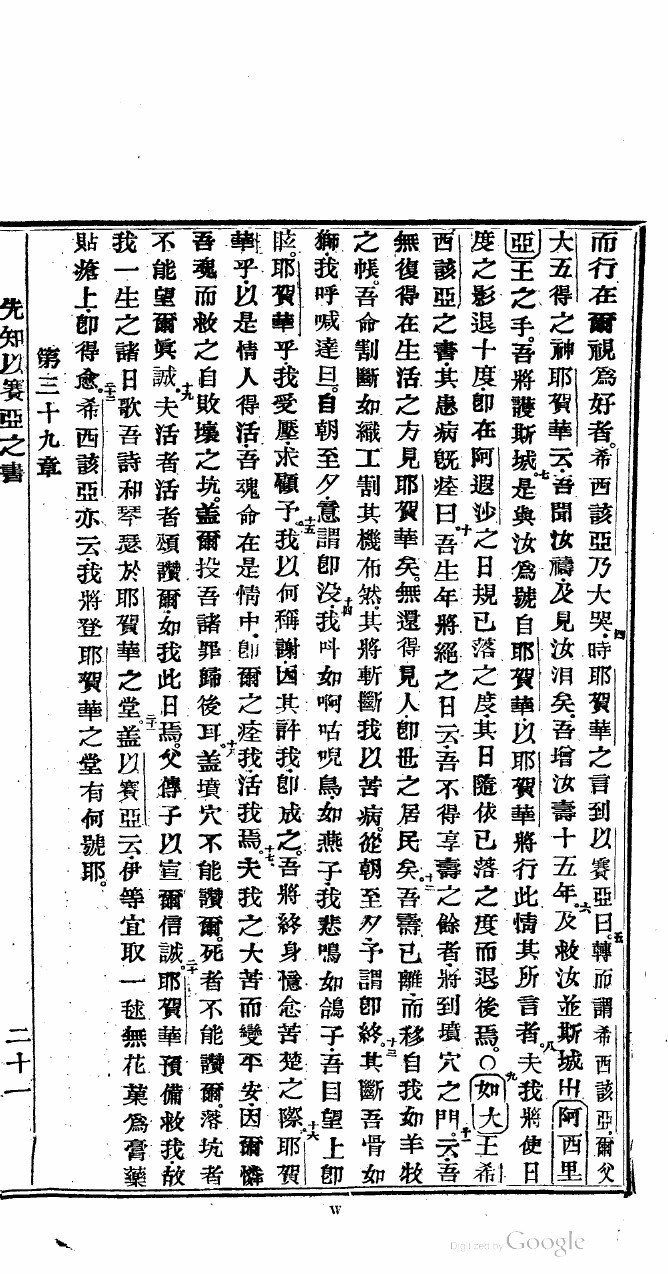 而行在爾視爲好者。希西該亞乃大哭。四時耶賀華之言到以賽亞曰。五轉而謂希西該亞爾父
大五得之神耶賀華云吾聞汝禱及見汝泪矣吾增汝壽十五年。六及救汝並斯城出阿西里
亞王之手。吾將護斯城。七是與汝爲號自耶賀華以耶賀華將行此情其所言者。八夫我將使日
度之影退十度卽在阿遐沙之日規已落之度其日隨依已落之度而退後焉。○九如大王希
西該亞之書其患病旣痊曰十吾生年將絕之日云吾不得享壽之餘者將到墳穴之門十一云吾
無復得在生活之方見耶賀華矣。無還得見人卽世之居民矣。十二吾壽已離而移自我如羊牧
之帳。吾命割斷如織工割其機布然其將斬斷我以苦病。從朝至夕予謂卽終。十三其斷吾骨如
獅我呼喊達旦。自朝至夕意謂卽没。十四我叫如啊咕唲鳥如燕子我悲鳴如鴿子吾目望上卽
眩。耶賀華乎我受壓求顧予。十五我以何稱謝因其許我卽成之。吾將終身憶念苦楚之際。十六耶賀
華乎以是情人得活吾魂命在是情中卽爾之痊我活我焉。十七夫我之大苦而變平安因爾憐
吾魂而救之自敗壞之坑。盖爾投吾諸罪歸後耳。十八盖墳穴不能讚爾。死者不能讚爾。落坑者
不能望爾眞誠。十九夫活者活者頌讚爾如我此日焉。父傳子以宣爾信誠。二十耶賀華預備救我故
我一生之諸日歌吾詩和琴瑟於耶賀華之堂。二一盖以賽亞云伊等宜取一毬無花菓爲膏藥
貼瘡上卽得愈。二二希西該亞亦云我將登耶賀華之堂有何號耶。
第三十九章
先知以賽亞之書
二十一
W
Digitized by Google